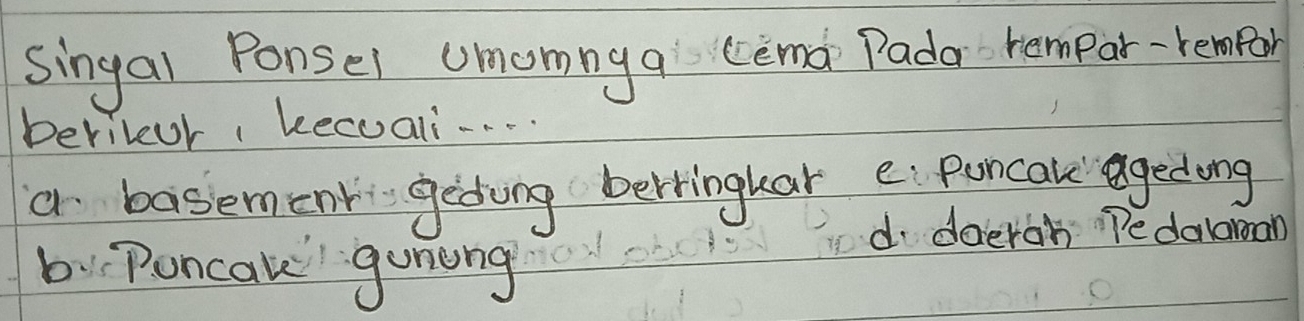 Singal Ponsel Umumnya lema Pada tempat-tempat
berikut, kecuali....
a. basement gedung bertingkat c. Puncak gedung
b. Puncak gunung d. daerah Pedalaman